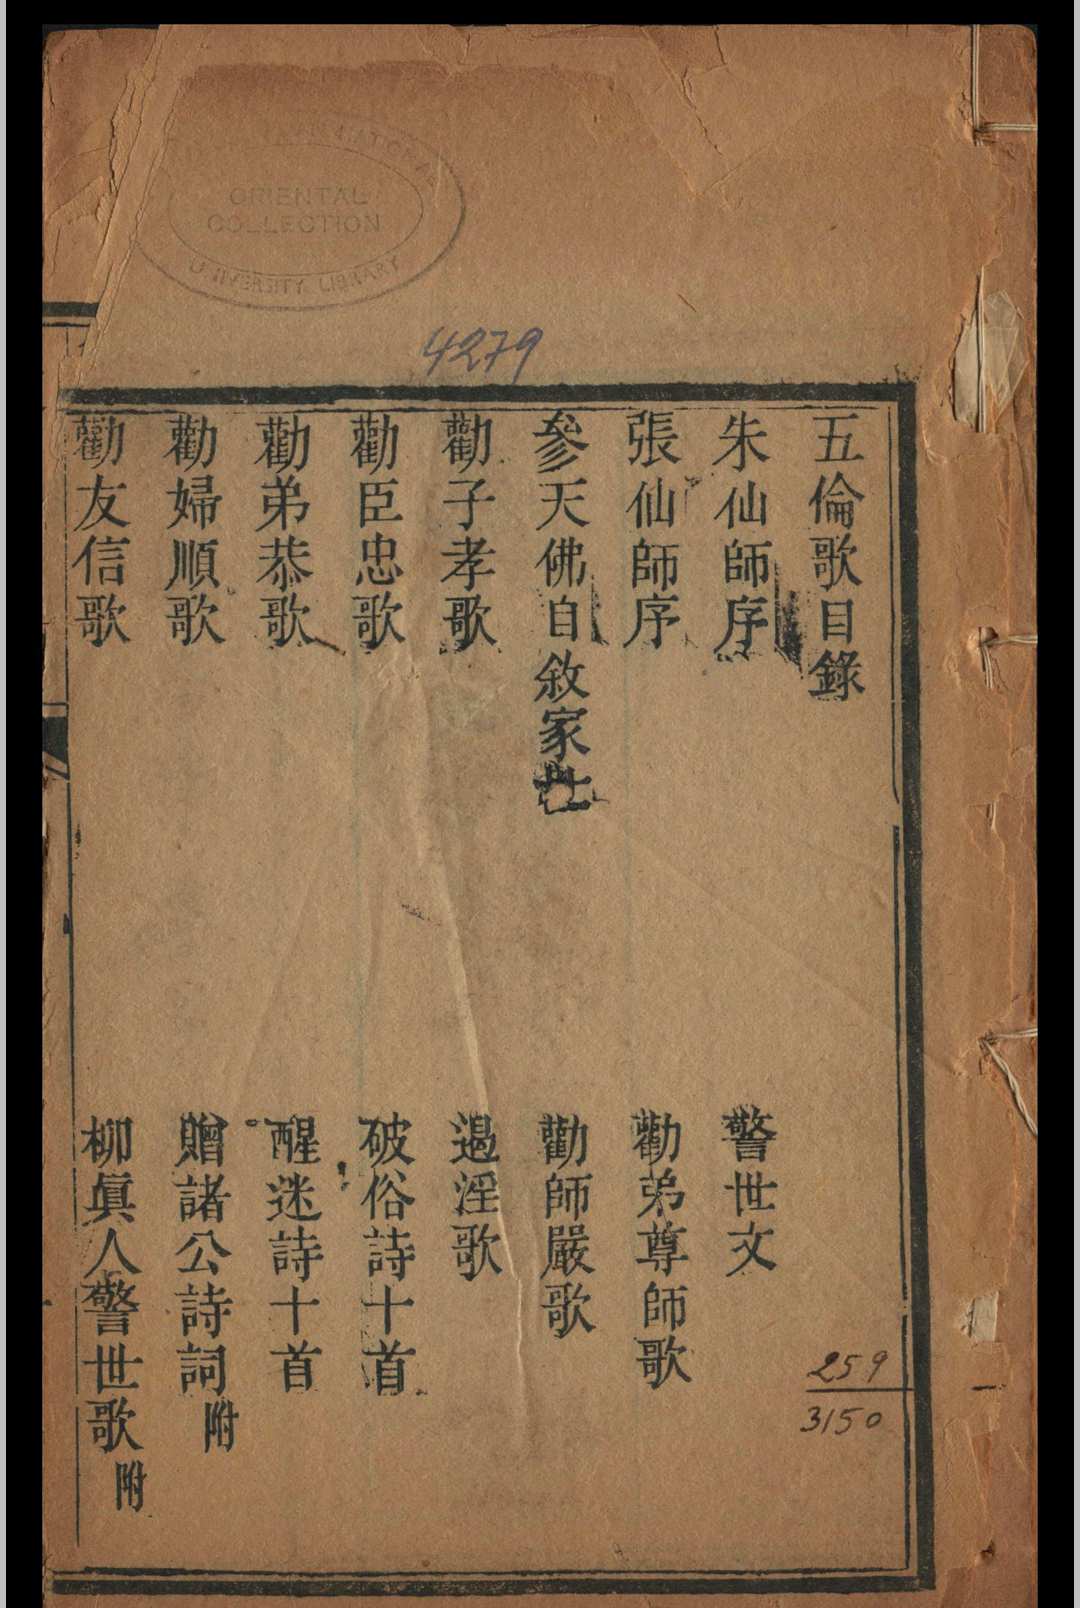 ORIENTAL
COLLECTION
UNIVERSITY LIBRARY
4279
五倫歌目錄
朱仙師序
警世文
張仙師序
勸弟尊師歌
參天佛自敘家世
勸師嚴歌
勸子孝歌
遏淫歌
勸臣忠歌
破俗詩十首
勸弟恭歌
醒迷詩十首
勸婦順歌
贈諸公詩詞附
勸友信歌
柳眞人警世歌附
259
3150